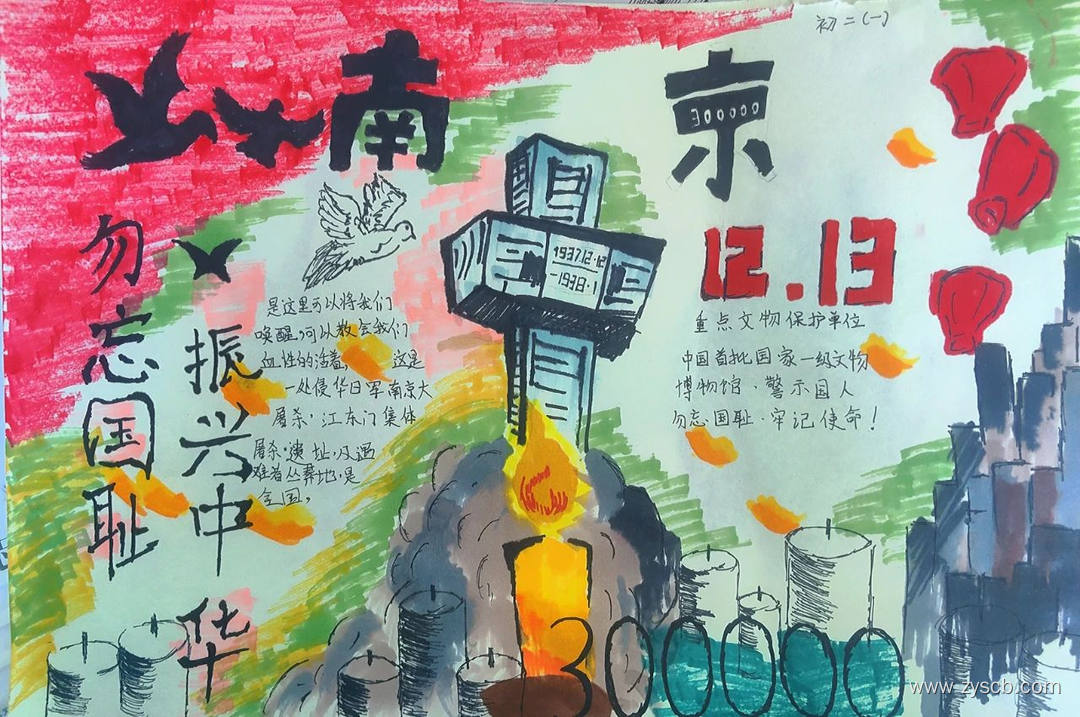 初二(一)
南京
300000
勿忘国耻
振兴中华
1937.12.12
-1938.1
12.13
是这里可以将我们
唤醒,可以教会我们
血性的活着,这是
一处侵华日军南京大
屠杀·江东门集体
屠杀·遗址·及遇
难者丛葬地·是
全国。
重点文物保护单位
中国首批国家一级文物
博物馆·警示国人
勿忘国耻·牢记使命!
300000
www.zyscb.com